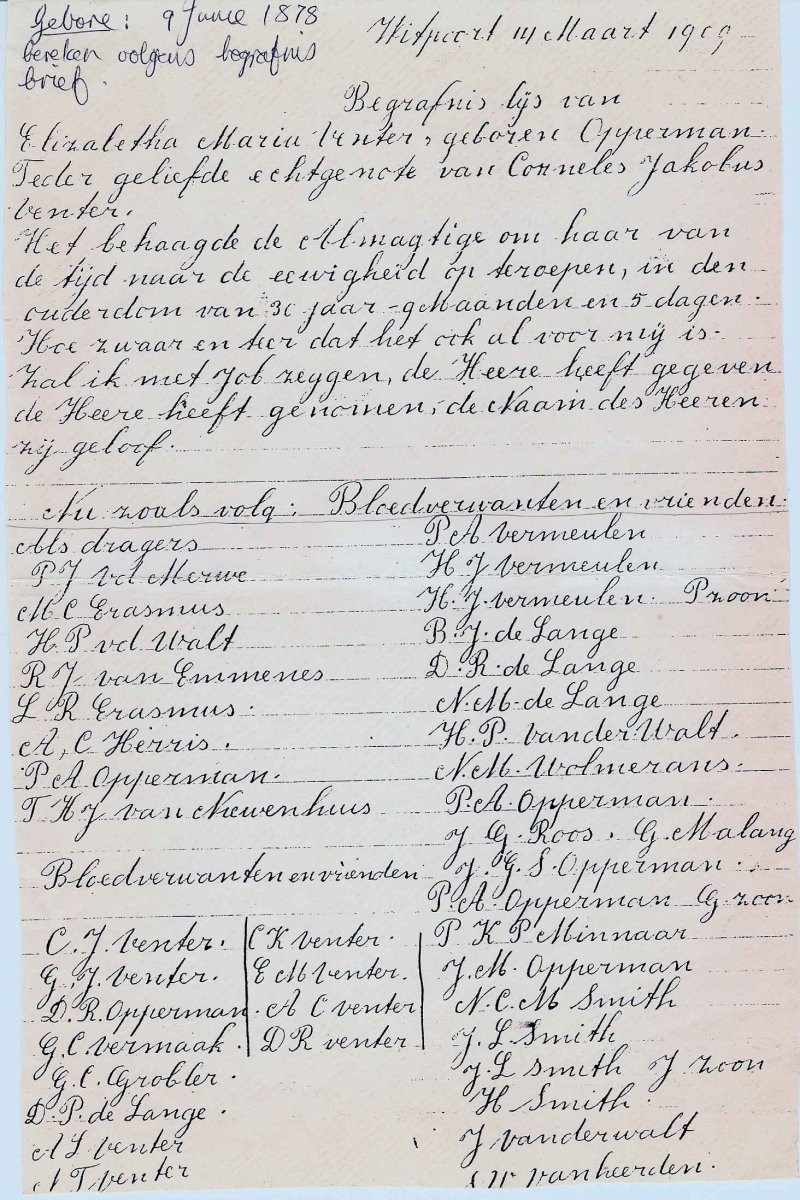 Gebore: 9 Junie 1878
bereken volgens begrafnis
brief.
Witpoort 14 Maart 1909
Begrafnis lijs van
Elizaletha Maria Venter, geboren Opperman.
Teder geliefde echtgenote van Corneles Jakobus
Venter.
Het behaagde de Almagtige om haar van
de tijd naar de eewigheid op teroepen, in den
ouderdom van 30 jaar - 9 Maanden en 5 dagen.
Hoe zwaar en teer dat het ook al voor mij is.
Zal ik met Job zeggen, de Heere heeft gegeven
de Heere heeft genomen, de Naam des Heeren
zij geloof.
Nu zoals volg: Bloedverwanten en vrienden.
Als dragers
P J vd Merwe
M C Erasmus
H P vd Walt
R J van Emmenes
L R Erasmus.
A, C Herris.
P A Opperman.
T H J van Niewenhuus
Bloedverwanten en vrienden
C. J. Venter.
G. J. Venter.
D. R. Opperman.
G. C. Vermaak.
G. C. Grobler.
D. P. de Lange.
A S Venter
T Venter
C K Venter.
E M Venter.
A C Venter
D R Venter
P A Vermeulen
H J Vermeulen
H. J. Vermeulen. P zoon
B. J. de Lange
D. R. de Lange
N. M. de Lange
H. P. van der Walt.
N. M. Wolmerans.
P. A. Opperman.
J G. Roos. G. Malang
J. G. S. Opperman.
P. A. Opperman G. zoon
P K P Minnaar
J. M. Opperman
N. C. M Smith
J. L Smith
J. L Smith J zoon
H Smith.
J vanderwalt
W vanheerden.